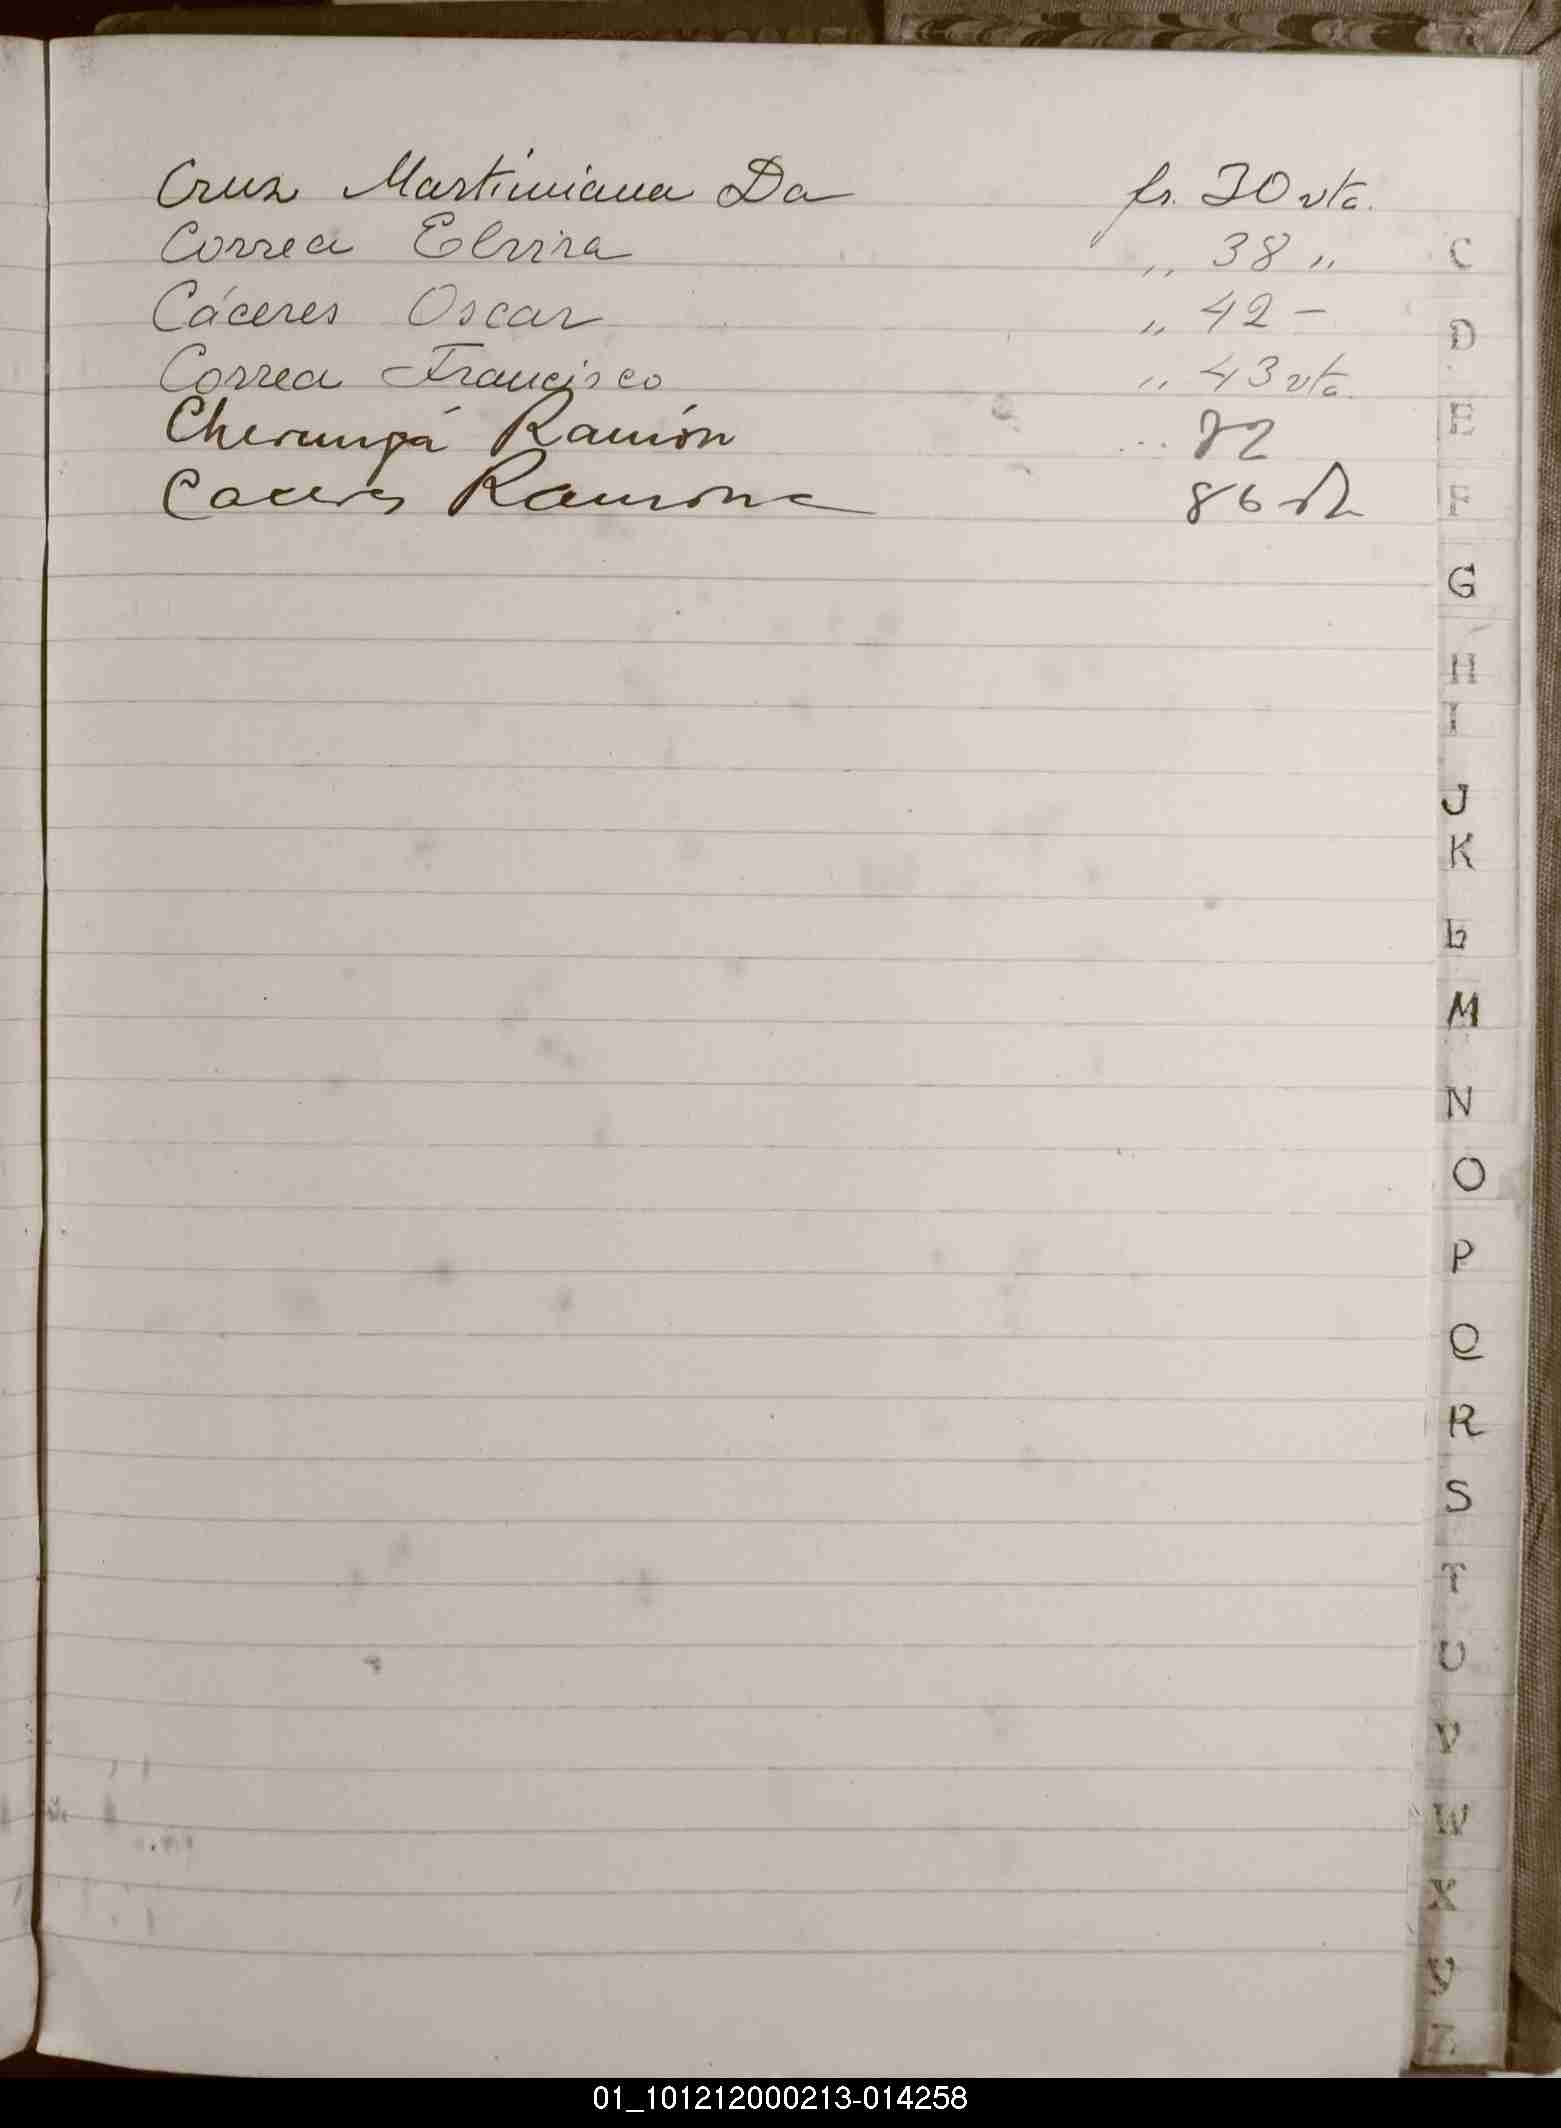 Cruz Martiniana Da fs. 30 vta.
Correa Elvira ,, 38 ,,
Cáceres Oscar ,, 42 –
Correa Francisco ,, 43 vta.
Ramón
Caceres Ramona 86
C
D
E
F
G
H
I
J
K
L
M
N
O
P
Q
R
S
T
U
V
W
X
Y
Z
01_101212000213-014258